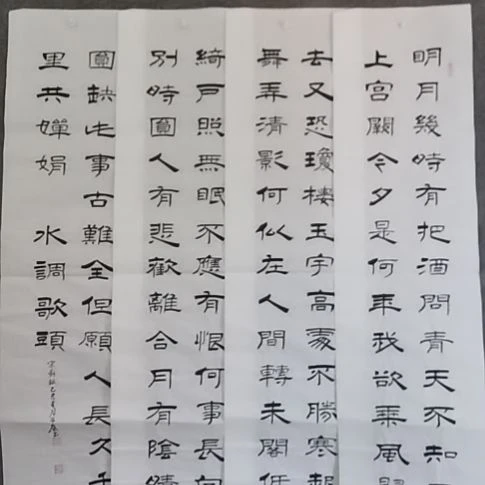 明月幾時有把酒問青天不知
上宮闕今夕是何年我欲乘風歸
去又恐瓊樓玉宇高處不勝寒起
舞弄清影何似在人間轉朱閣低
綺戶照無眠不應有恨何事長向
別時圓人有悲歡離合月有陰晴
圓缺此事古難全但願人長久千
里共嬋娟 水調歌頭